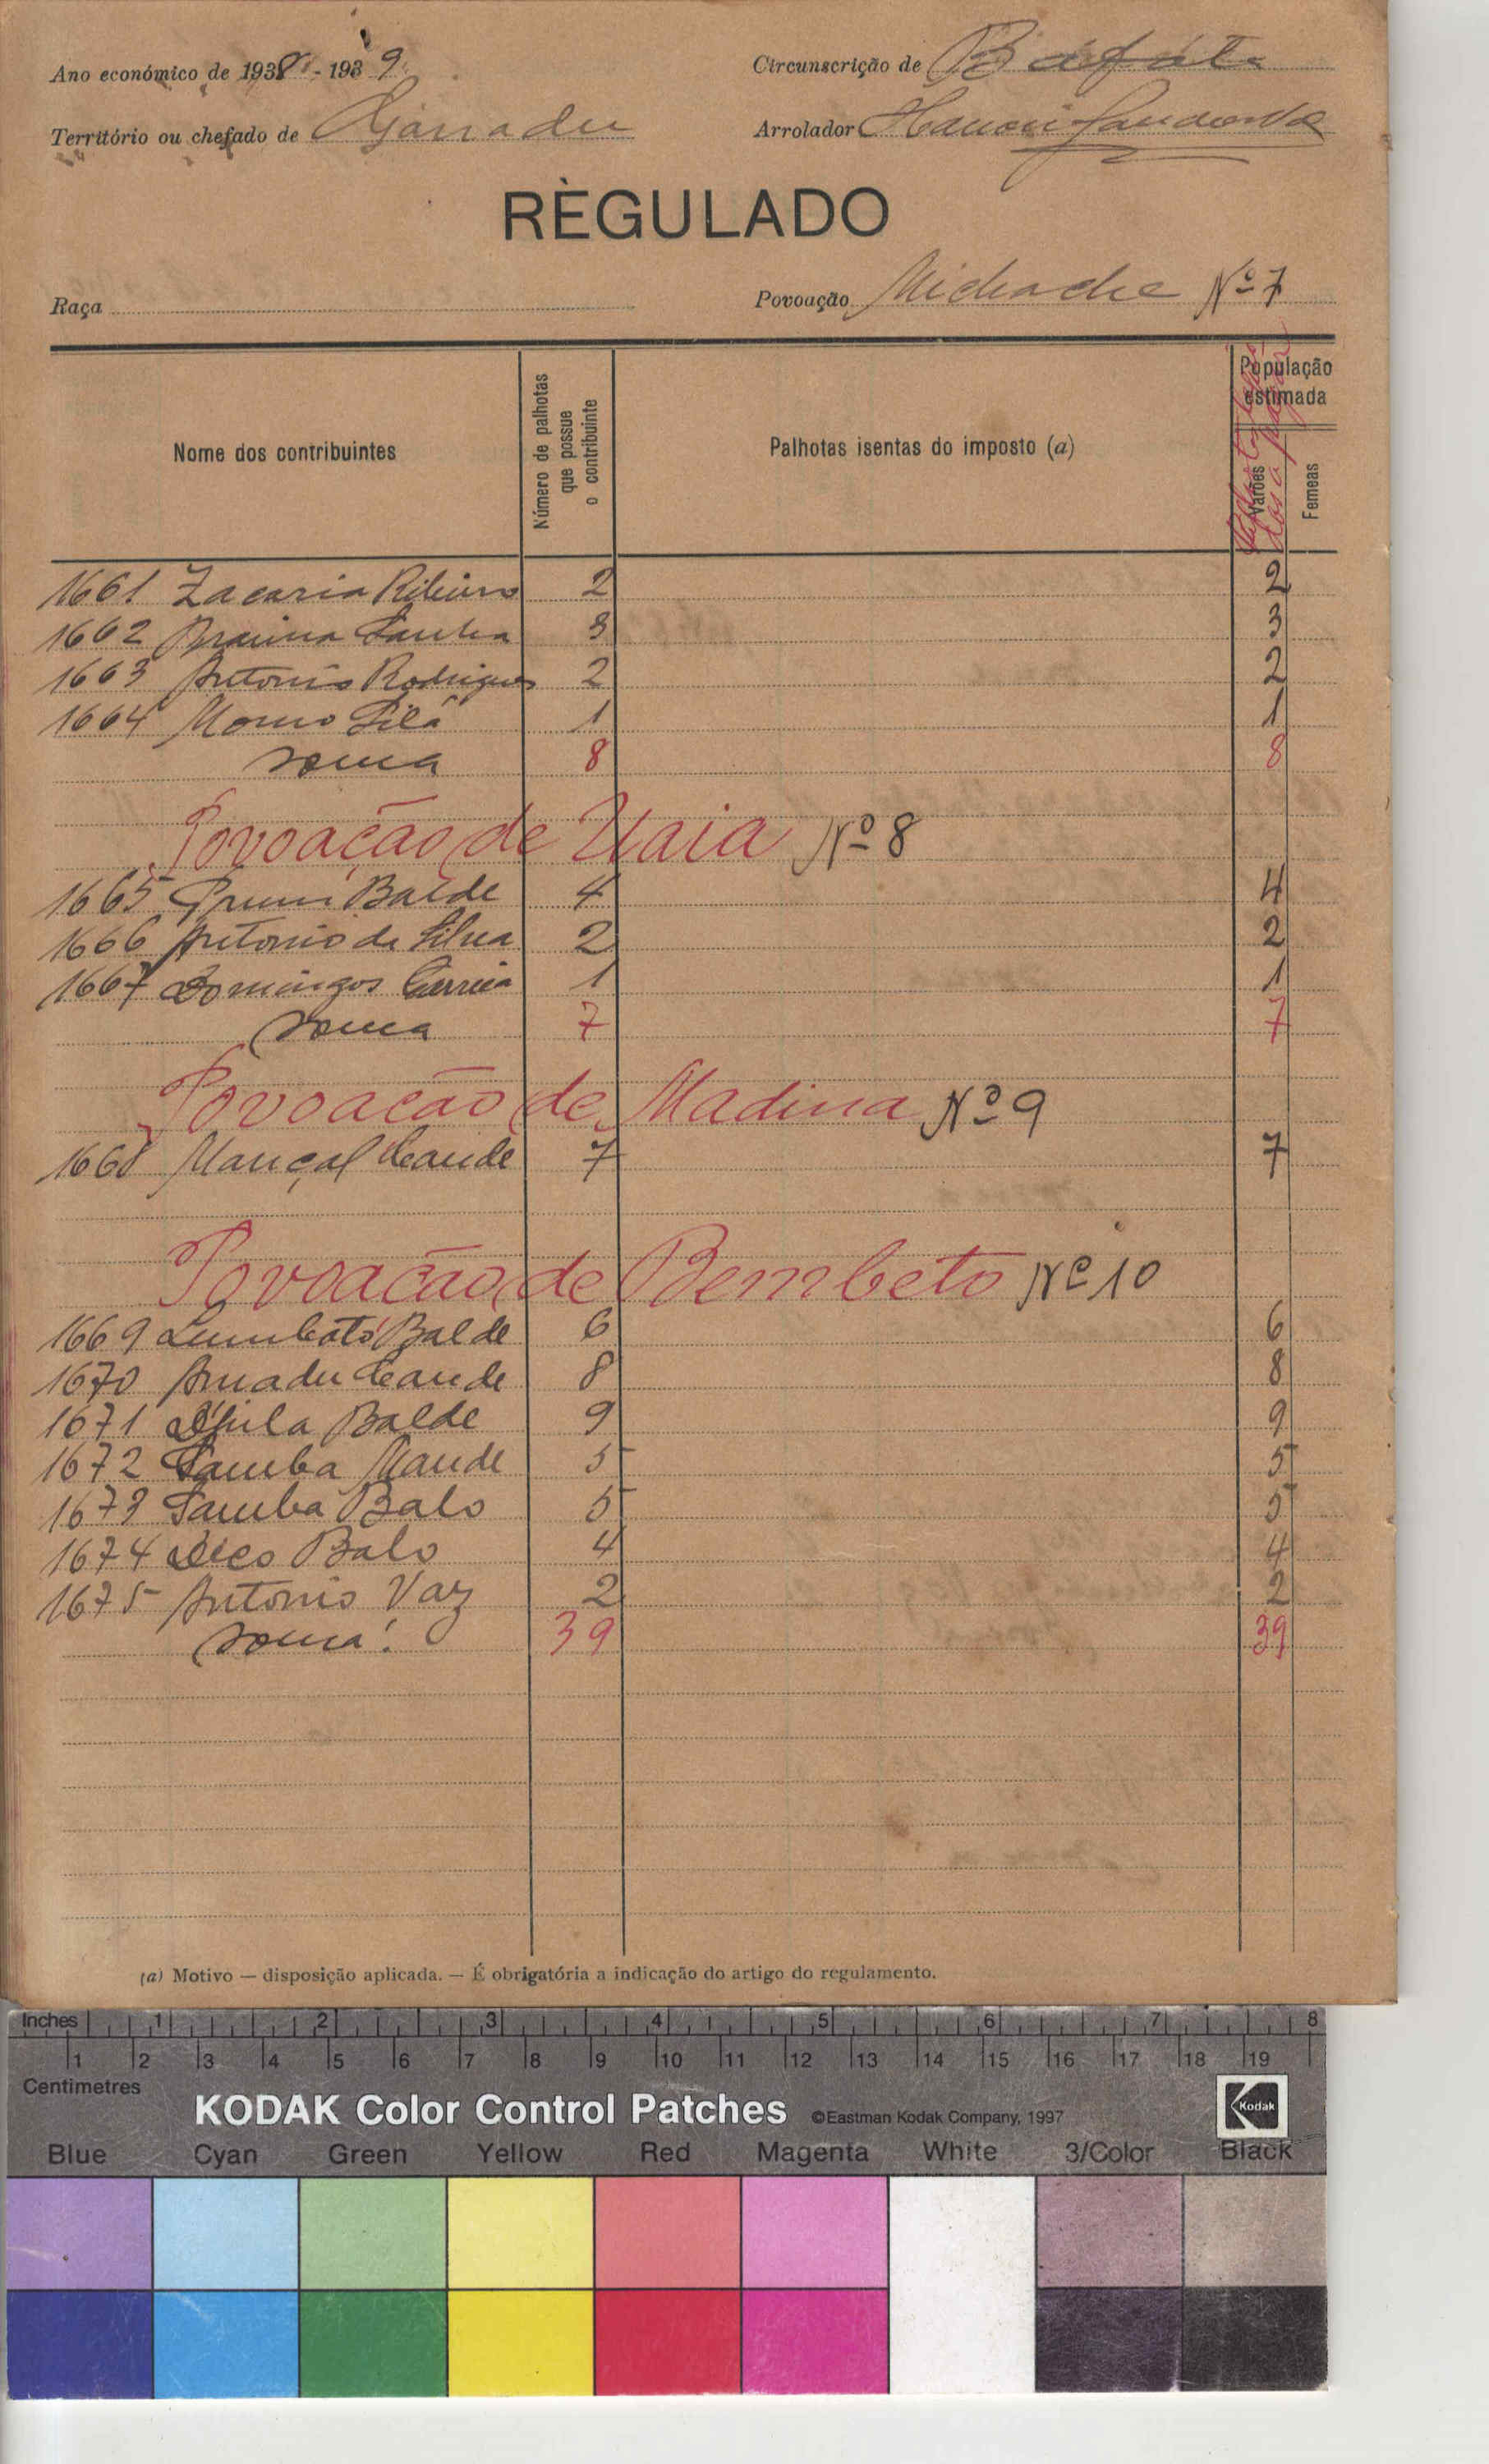 Ano económico de 1938 - 1939
Circunscrição de Bafatá
Território ou chefado de
Arrolador
RÈGULADO
Raça
Povoação Nº 7
Nome dos contribuintes
Número de palhotas que possue o contribuinte
Palhotas isentas do imposto (a)
População estimada
Varões
Femeas
1661 Zacaria Ribeiro 2 2
1662 Braima Sanha 3 3
1663 Antonio Rodrigues 2 2
1664 Momo Silá 1 1
soma 8 8
Povoação de Uaia Nº 8
1665 Balde 4 4
1666 Antonio da Silva 2 2
1667 Domingos Correia 1 1
soma 7 7
Povoacão de Madina Nº 9
1668 Mançal Cande 7 7
Povoacão de Bembeto Nº 10
1669 Balde 6 6
1670 Amadu Cande 8 8
1671 Balde 9 9
1672 Samba Mande 5 5
1673 Samba Balo 5 5
1674 Balo 4 4
1675 Antonio Vaz 2 2
soma 39 39
(a) Motivo — disposição aplicada. — É obrigatória a indicação do artigo do regulamento.
Inches 1 2 3 4 5 6 7 8
1 2 3 4 5 6 7 8 9 10 11 12 13 14 15 16 17 18 19
Centimetres
KODAK Color Control Patches ©Eastman Kodak Company, 1997 Kodak
Blue Cyan Green Yellow Red Magenta White 3/Color Black